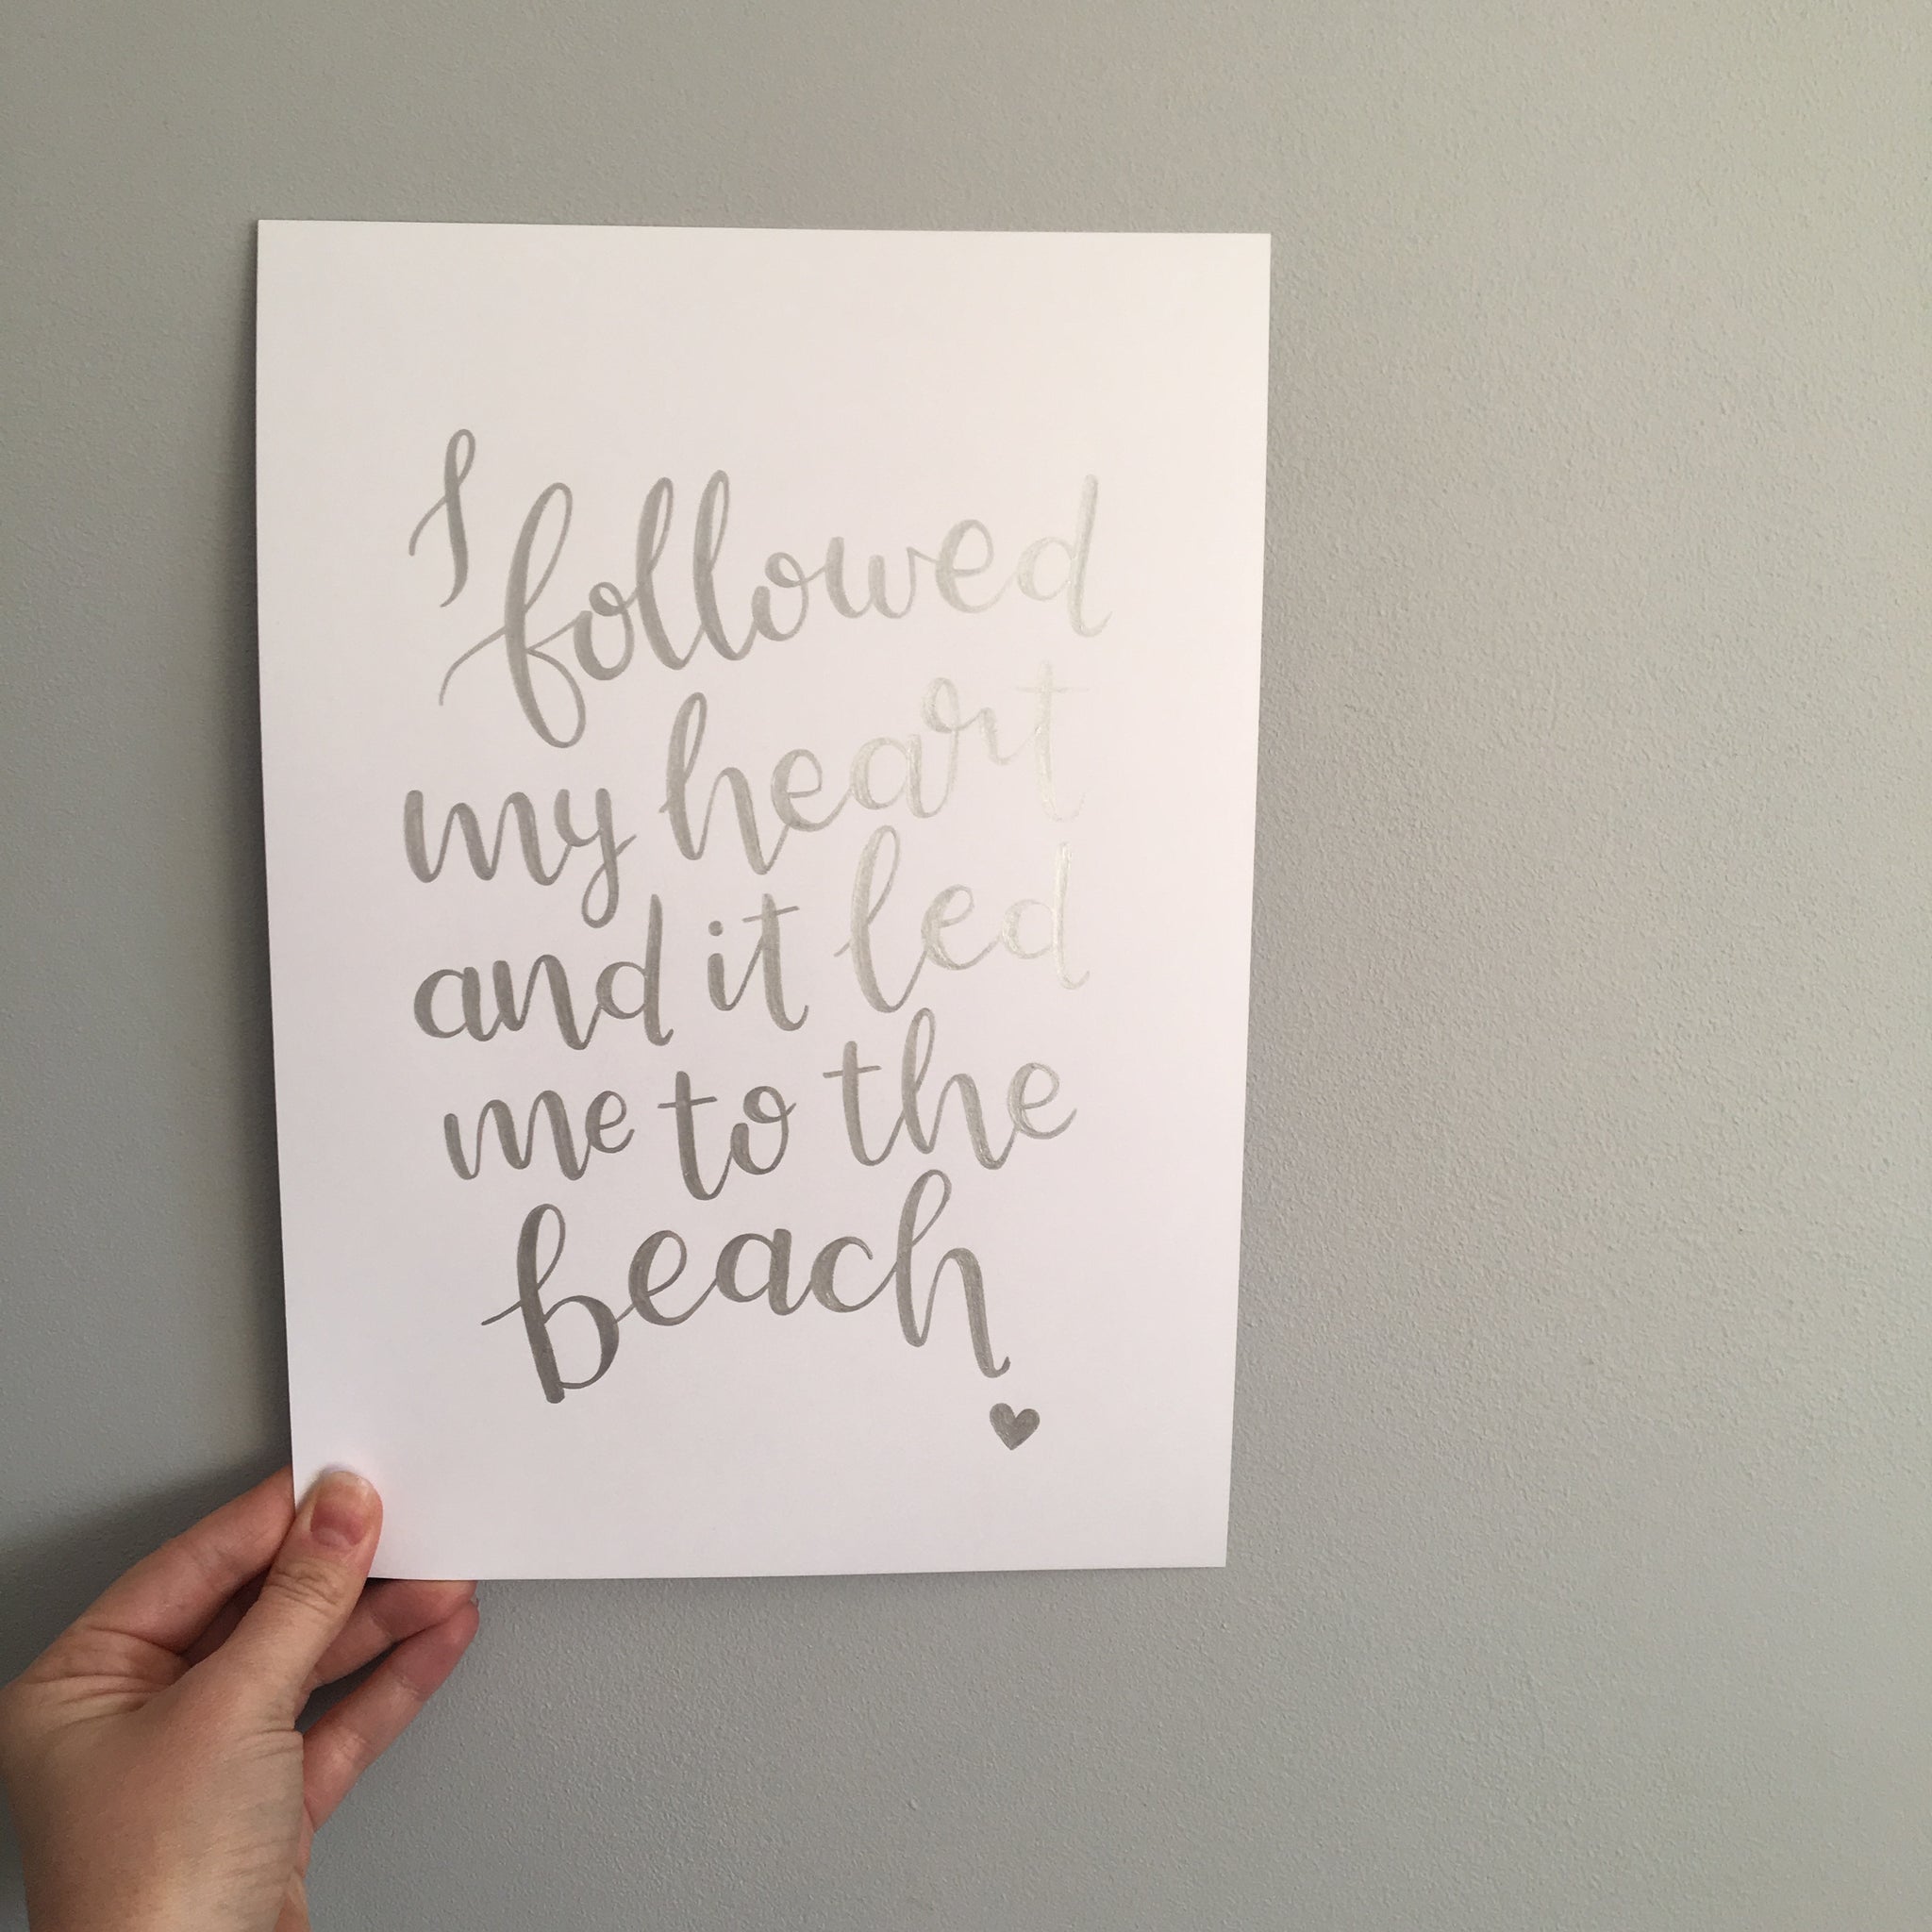 I followed
my heart
and it led
me to the
beach